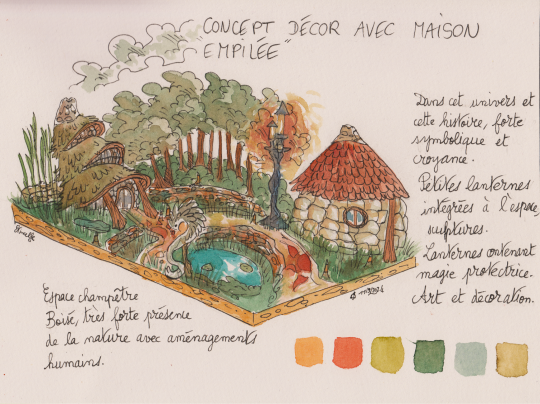 CONCEPT DÉCOR AVEC MAISON
"EMPILÉE"
Dans cet univers et
cette histoire, forte
symbolique et
croyance.
Petites lanternes
intégrées à l'espace,
sculptures.
Lanternes contenant
magie protectrice.
Art et décoration.
Espace champêtre
Boisé, très forte présence
de la nature avec aménagements
humains.